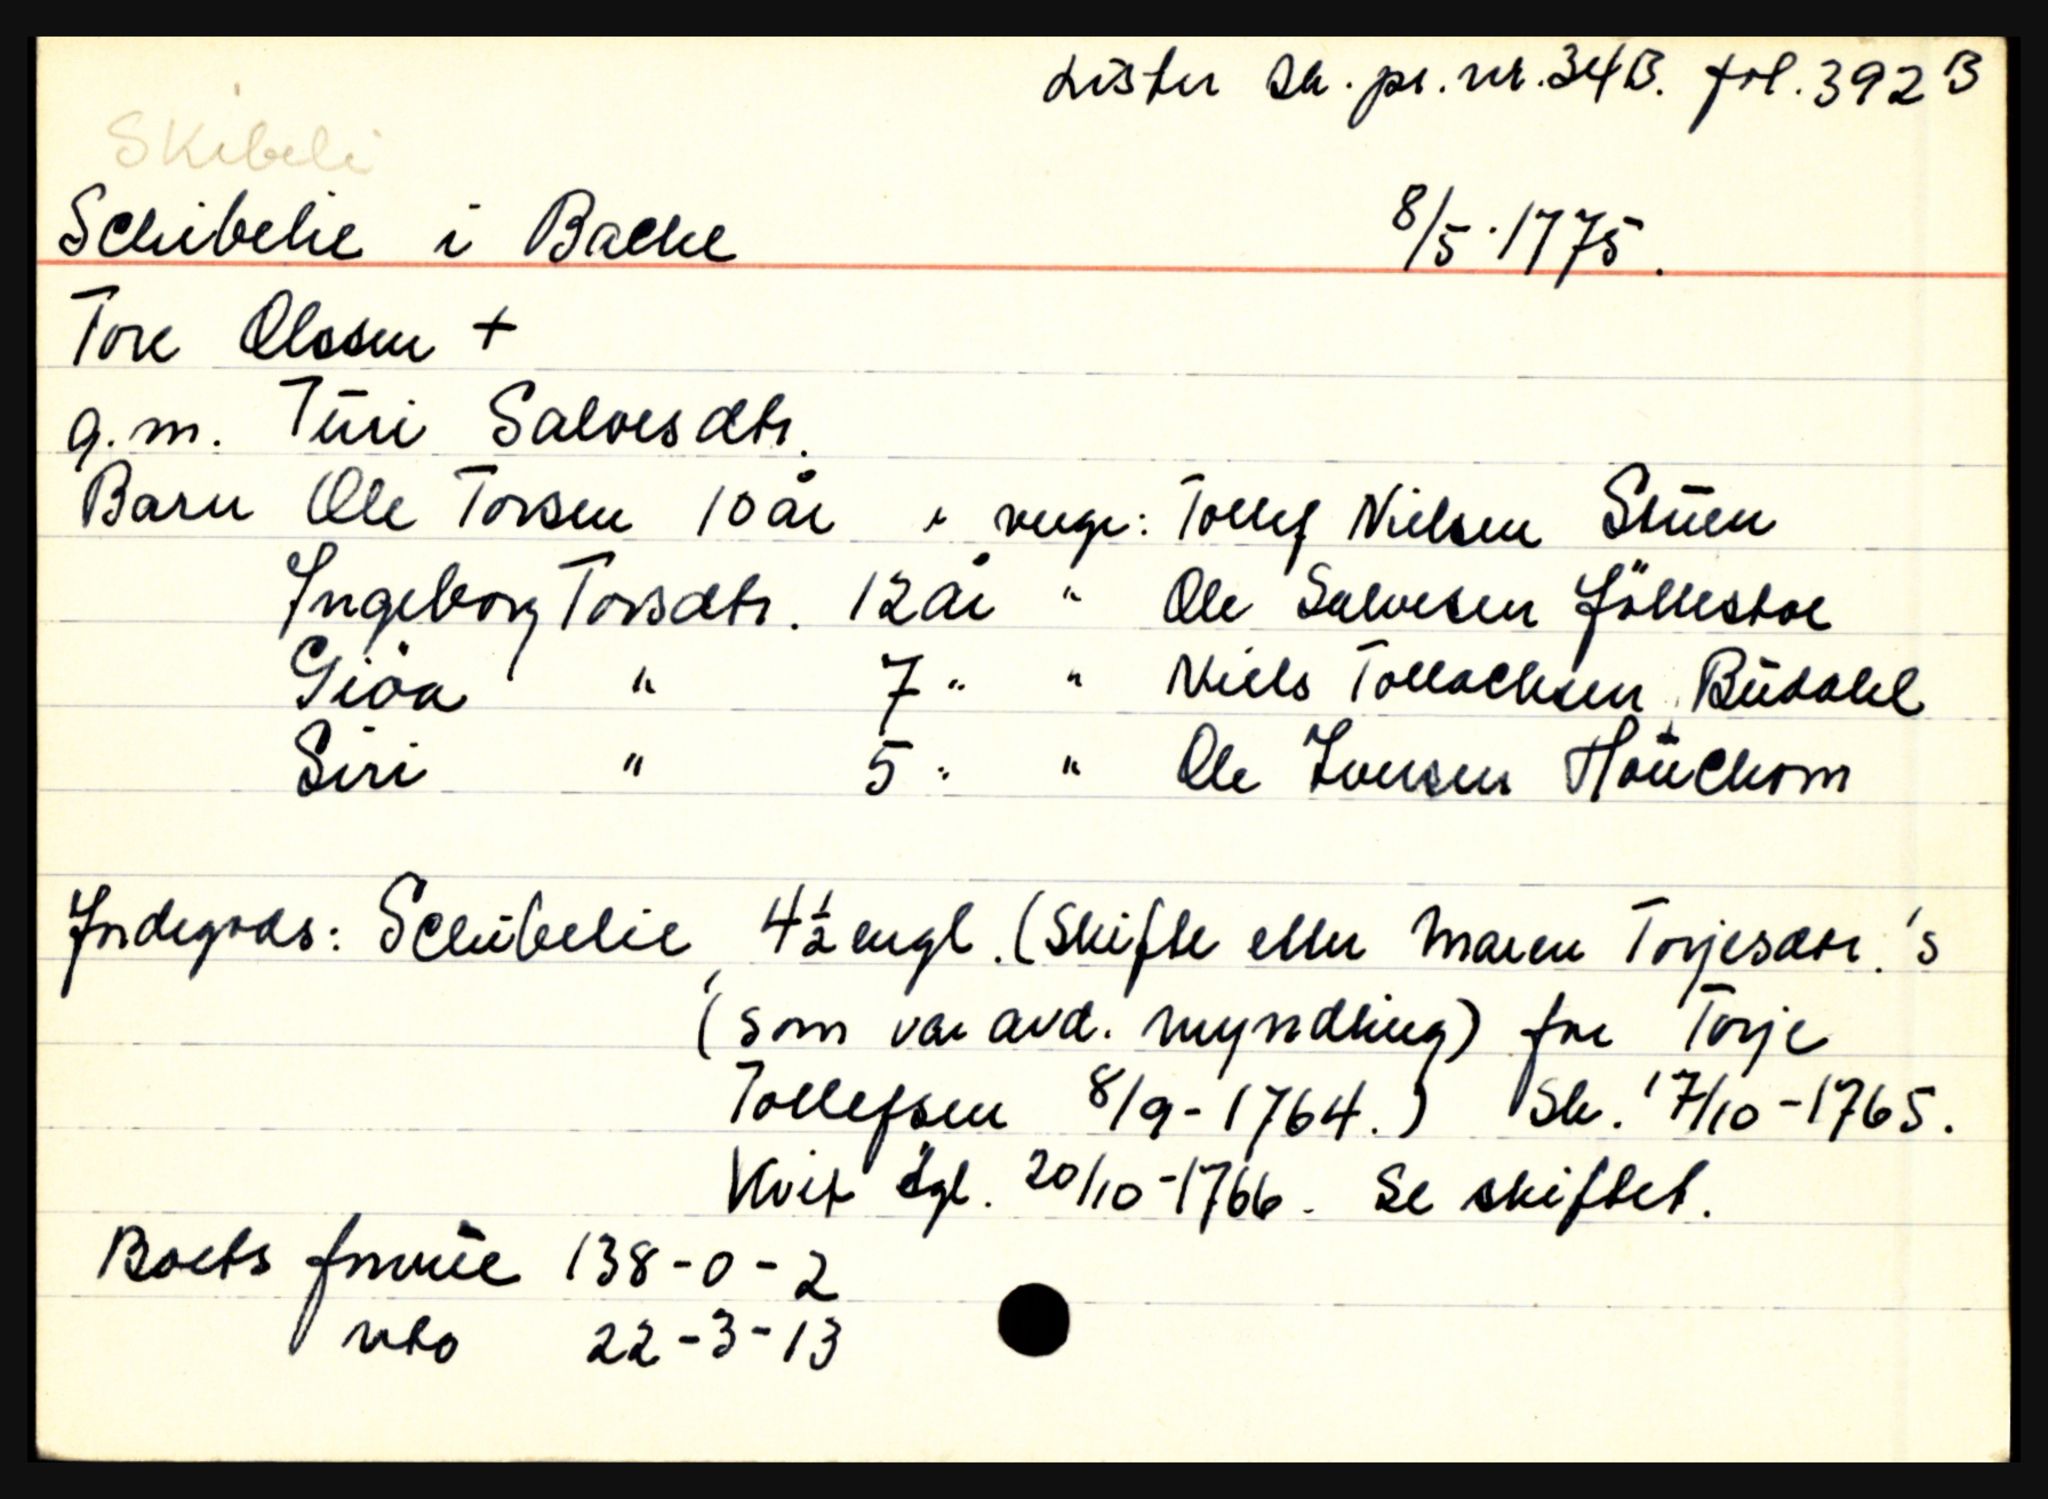 Lister Sk. pr. nr. 34B. fol. 392 B
Skibeli
Schibelie i Backe 8/5-1775.
Tore Olssen +
g.m. Turi Salvesdtr.
Barn Ole Torsen 10 år verge: Tollef Nielsen Stuen
Ingeborg Torsdtr. 12 år " Ole Salvesen Föllestoe
Giöa " 7 " " Niels Tollachsen Budahl
Siri " 5 " " Ole Iversen Houchom
Jordegods: Schibelie, 4½ engl. (Skifte etter Maren Torjesdtr.'s
(som var avd. myndling) for Torje
Tollefsen 8/9-1764.) Sk. 17/10-1765.
Kvit dgl. 20/10-1766. Se skiftet.
Boets formue 138-0-2
nto 22-3-13